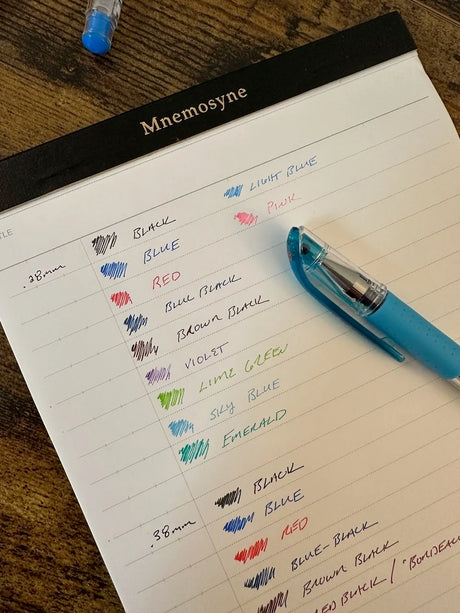 Mnemosyne
TLE
.28mm
BLACK
BLUE
RED
BLUE BLACK
BROWN BLACK
VIOLET
LIME GREEN
SKY BLUE
EMERALD
LIGHT BLUE
PINK
.38mm
BLACK
BLUE
RED
BLUE-BLACK
BROWN BLACK
RED BLACK / "BORDEAU